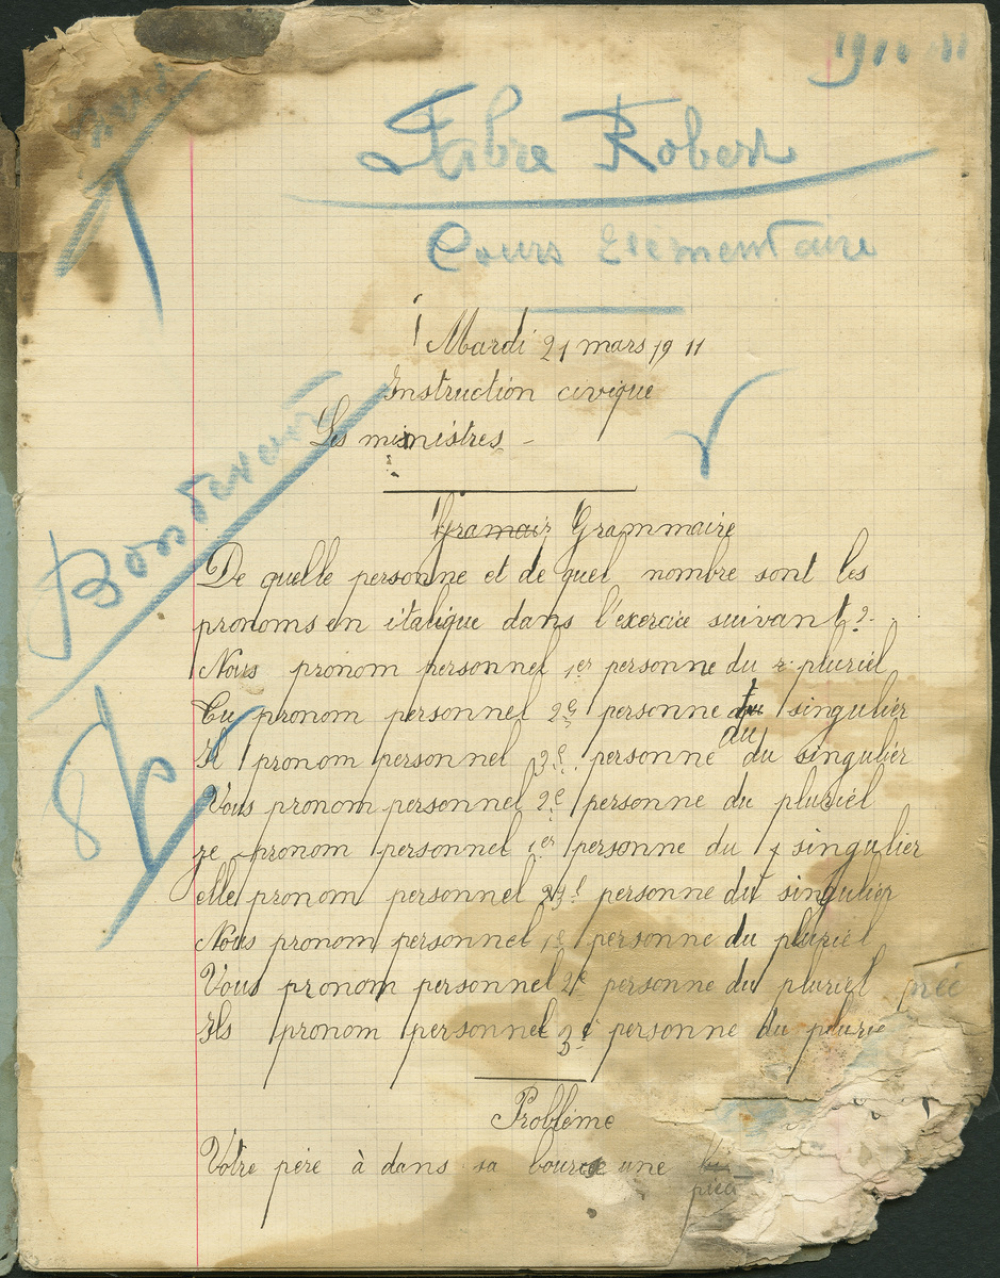 Fabre Robert
Cours Elementaire
Mardi 21 mars 1911
Instruction civique
Les ministres -
Gramair Grammaire
De quelle personne et de quel nombre sont les
pronoms en italique dans l'exercice suivant ?
Nous pronom personnel 1er personne du pluriel
Tu pronom personnel 2e personne du singulier
Il pronom personnel 3e personne du singulier
Vous pronom personnel 2e personne du pluriel
je pronom personnel 1er personne du singulier
elle pronom personnel 3e personne du singulier
Nous pronom personnel 1e personne du pluriel
Vous pronom personnel 2e personne du pluriel
Ils pronom personnel 3e personne du plurie
Problème
Votre père à dans sa bource une